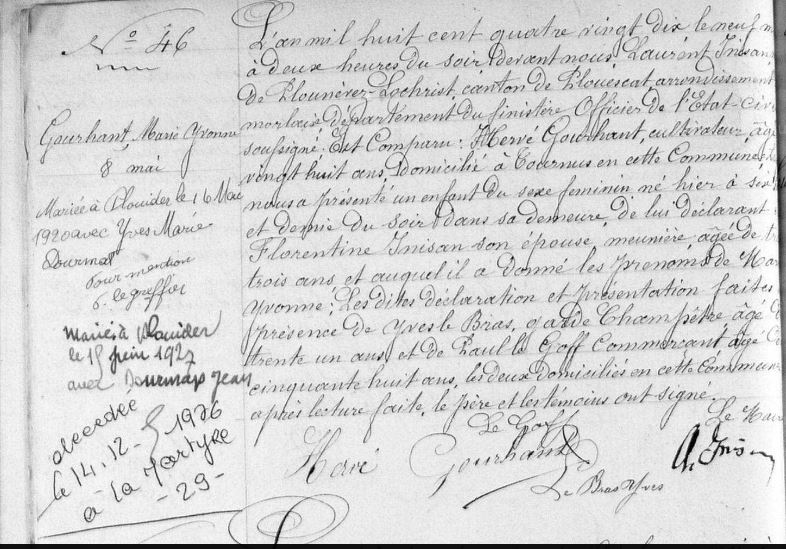 N° 46
Gourhant, Marie Yvonne
8 mai
Mariée à Plouider le 16 Mai
1920 avec Yves Marie
Dourmap
Pour mention
le greffier
Mariée à Plouider
le 15 juin 1927
avec Dourmap Jean
decedee
le 14.12.1976
a la Martyre
-29-
L'an mil huit cent quatre vingt dix le neuf
à deux heures du soir, devant nous, Laurent Inisan,
de Plounevez-Lochrist, canton de Plouescat arrondissement
morlaix département du finistère Officier de l'Etat-Civ
soussigné. Est Comparu: Hervé Gourhant, cultivateur, âgé
vingt huit ans, domicilié à Tournus en cette Commune
nous a présenté un enfant du sexe feminin né hier à
et demie du soir dans sa demeure, de lui déclarant
Florentine Inisan son épouse, meunière, âgée de
trois ans, et auquel il a donné les prenoms de Mar
Yvonne; Les dites déclaration et présentation faites
présence de Yves le Bras, garde Champêtre âgé
trente un ans, et de Paul le Goff Commerçant âgé
cinquante huit ans, les deux domiciliés en cette commune
après lecture faite, le père et les témoins ont signé.
Le Maire
Le Goff
Hervé Gourhant
Le Bras Yves
Inisan